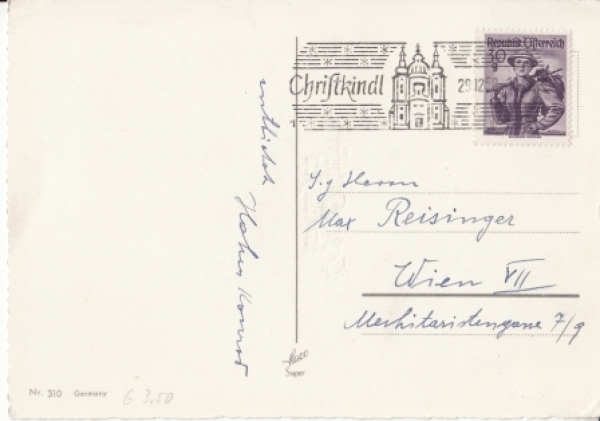 Republik Österreich
30
g
Christkindl
29.12.58
S.g. Herrn
Max Reisinger
Wien VII
Mechitaristengasse 7/9
Super
Nr. 310 Germany
G 3,50